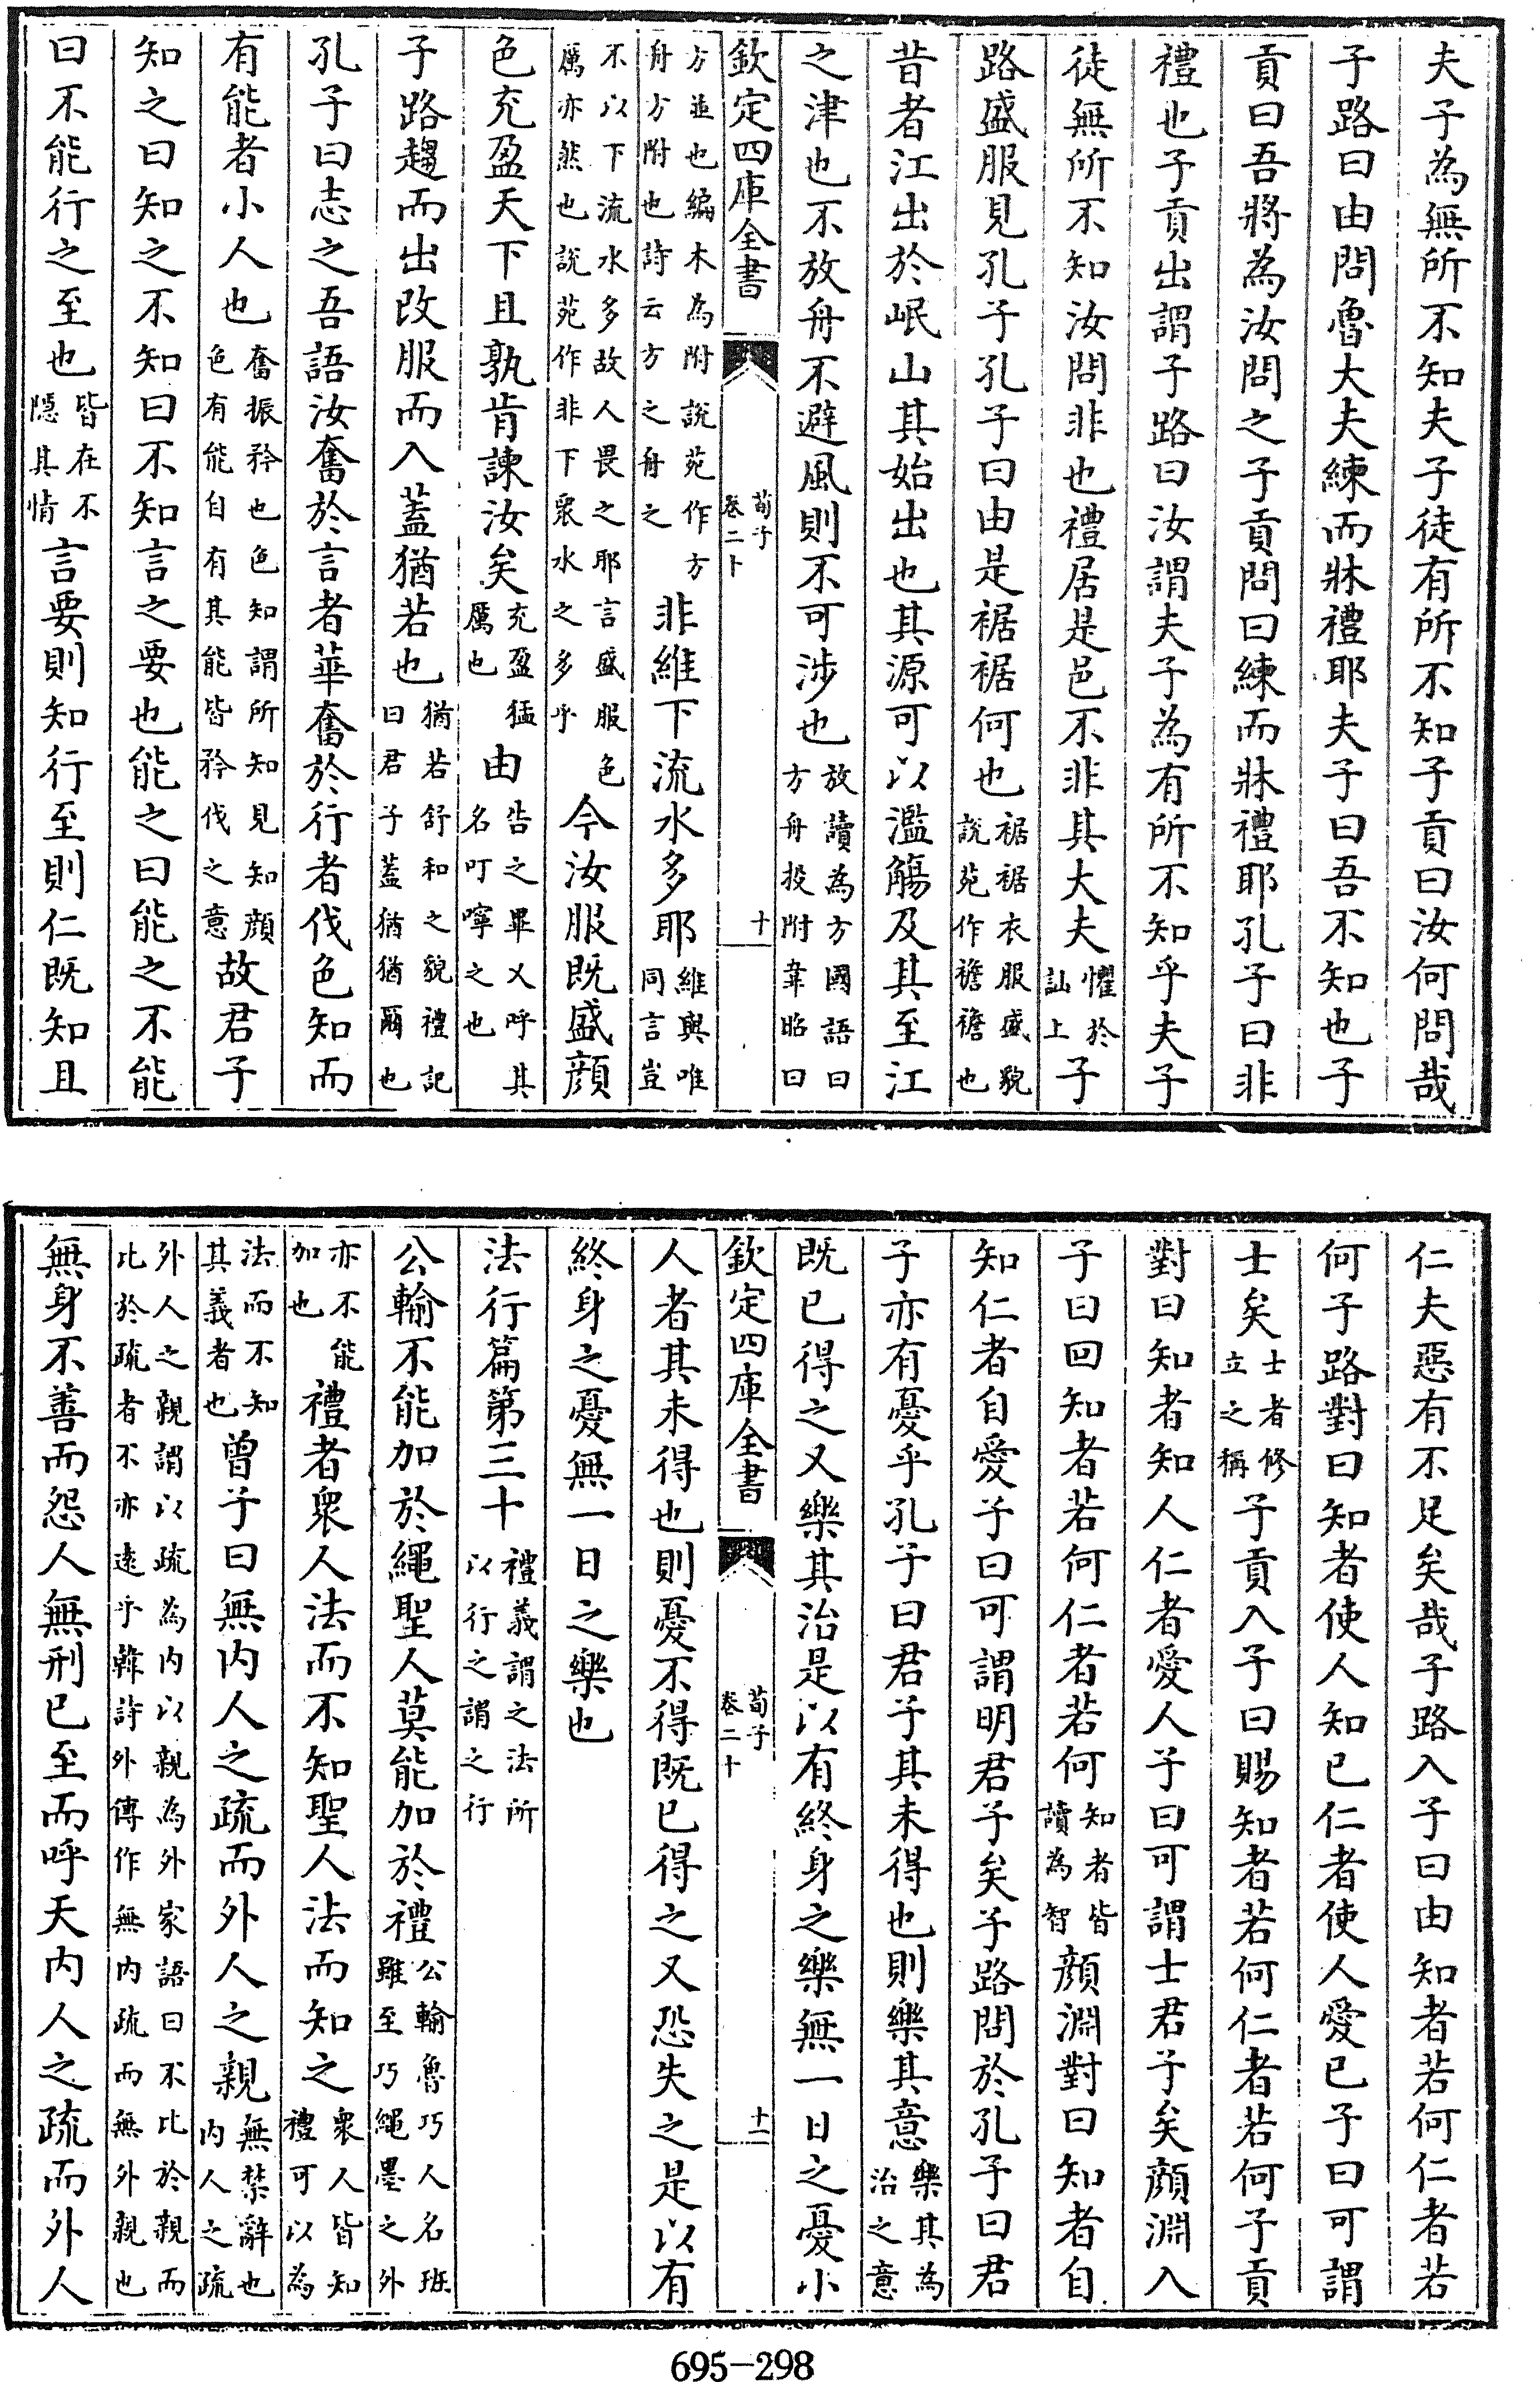 夫子為無所不知夫子徒有所不知子貢曰汝何問哉
子路曰由問魯大夫練而牀禮耶夫子曰吾不知也子
貢曰吾將為汝問之子貢問曰練而牀禮耶孔子曰非
禮也子貢出謂子路曰汝謂夫子為有所不知乎夫子
徒無所不知汝問非也禮居是邑不非其大夫懼於訕上子
路盛服見孔子孔子曰由是裾裾何也裾裾衣服盛貌說苑作襜襜也
昔者江出於岷山其始出也其源可以濫觴及其至江
之津也不放舟不避風則不可涉也放讀為方國語曰方舟投柎韋昭曰
欽定四庫全書 荀子卷二十 十
方並也編木為附說苑作方舟方附也詩云方之舟之非維下流水多耶維與唯同言豈
不以下流水多故人畏之耶言盛服色厲亦然也說苑作非下衆水之多乎今汝服既盛顔
色充盈天下且孰肯諫汝矣充盈猛厲也由告之畢又呼其名叮嚀之也
子路趨而出改服而入蓋猶若也猶若舒和之貌禮記曰君子蓋猶猶爾也
孔子曰志之吾語汝奮於言者華奮於行者伐色知而
有能者小人也奮振矜也色知謂所知見知顔色有能自有其能皆矜伐之意故君子
知之曰知之不知曰不知言之要也能之曰能之不能
曰不能行之至也皆在不隱其情言要則知行至則仁既知且
仁夫惡有不足矣哉子路入子曰由知者若何仁者若
何子路對曰知者使人知已仁者使人愛已子曰可謂
士矣士者修立之稱子貢入子曰賜知者若何仁者若何子貢
對曰知者知人仁者愛人子曰可謂士君子矣顔淵入
子曰回知者若何仁者若何知者皆讀為智顔淵對曰知者自
知仁者自愛子曰可謂明君子矣子路問於孔子曰君
子亦有憂乎孔子曰君子其未得也則樂其意樂其為治之意
既已得之又樂其治是以有終身之樂無一日之憂小
欽定四庫全書 荀子卷二十 十一
人者其未得也則憂不得既已得之又恐失之是以有
終身之憂無一日之樂也
法行篇第三十禮義謂之法所以行之謂之行
公輸不能加於繩聖人莫能加於禮公輸魯巧人名班雖至巧繩墨之外
亦不能加也禮者衆人法而不知聖人法而知之衆人皆知禮可以為
法而不知其義者也曾子曰無内人之疏而外人之親無禁辭也内人之疏
外人之親謂以疏為内以親為外家語曰不比於親而比於疏者不亦遠乎韓詩外傳作無内疏而無外親也
無身不善而怨人無刑已至而呼天内人之疏而外人
695-298